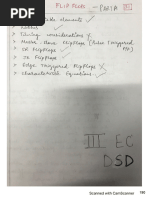 FLIP FLOPS - PART A
Latches
Timing considerations
Master Slave FlipFlops (Pulse Triggered
FF)
SR FlipFlops
JK FlipFlops
Edge Triggered FlipFlops
Characteristic Equations
III EC
DSD
Scanned with CamScanner
190